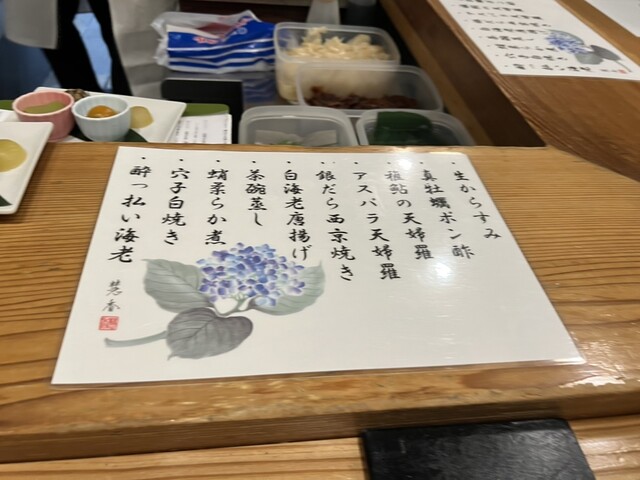 ・生からすみ
・真牡蠣ポン酢
・稚鮎の天婦羅
・アスパラ天婦羅
・銀だら西京焼き
・白海老唐揚げ
・茶碗蒸し
・蛸柔らか煮
・穴子白焼き
・酔っ払い海老
慧香